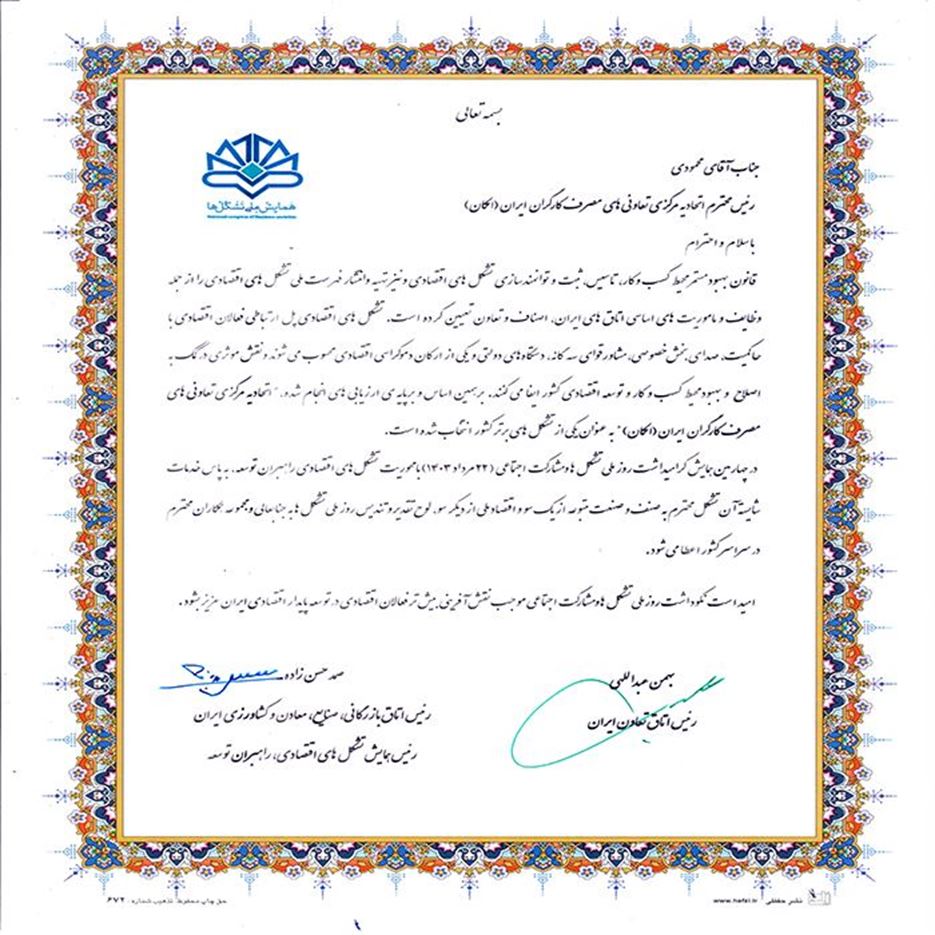 بسمه تعالی
همایش ملی تشکل‌ها
جناب آقای محمودی
رئیس محترم اتحادیه مرکزی تعاونی های مصرف کارگران ایران (امکان)
با سلام و احترام
قانون بهبود مستمر محیط کسب و کار، تاسیس، ثبت و توانمندسازی تشکل های اقتصادی و نیز تهیه و انتشار فهرست ملی تشکل های اقتصادی را از جمله
وظایف و ماموریت های اساسی اتاق های ایران، اصناف و تعاون تعیین کرده است. تشکل های اقتصادی پل ارتباطی فعالان اقتصادی با
حاکمیت، صدای بخش خصوصی، مشاور قوای سه گانه، دستگاه های دولتی و یکی از ارکان دموکراسی اقتصادی محسوب می شوند و نقش موثری در کمک به
اصلاح و بهبود محیط کسب و کار و توسعه اقتصادی کشور ایفا می کنند. بر همین اساس و بر پایه ی ارزیابی های انجام شده، "اتحادیه مرکزی تعاونی های
مصرف کارگران ایران (امکان)" به عنوان یکی از تشکل های برتر کشور انتخاب شده است.
در چهارمین همایش گرامیداشت روز ملی تشکل ها و مشارکت اجتماعی (۲۲ مرداد ۱۴۰۳) با محوریت تشکل های اقتصادی راهبران توسعه، به پاس خدمات
شایسته آن تشکل محترم به صنف و صنعت متبوعه از یک سو و اقتصاد ملی از دیگر سو، لوح تقدیر و تندیس روز ملی تشکل ها به جنابعالی و مجموعه همکاران محترم
در سراسر کشور اعطا می شود.
امید است نکوداشت روز ملی تشکل ها و مشارکت اجتماعی موجب نقش آفرینی بیش تر فعالان اقتصادی در توسعه پایدار اقتصادی ایران عزیز بشود.
بهمن عبداللهی
رئیس اتاق تعاون ایران
صمد حسن زاده
رئیس اتاق بازرگانی، صنایع، معادن و کشاورزی ایران
رئیس همایش تشکل های اقتصادی، راهبران توسعه
نشر حفظی www.hafzi.ir
حق چاپ محفوظ تذهیب شماره: ۶۷۲